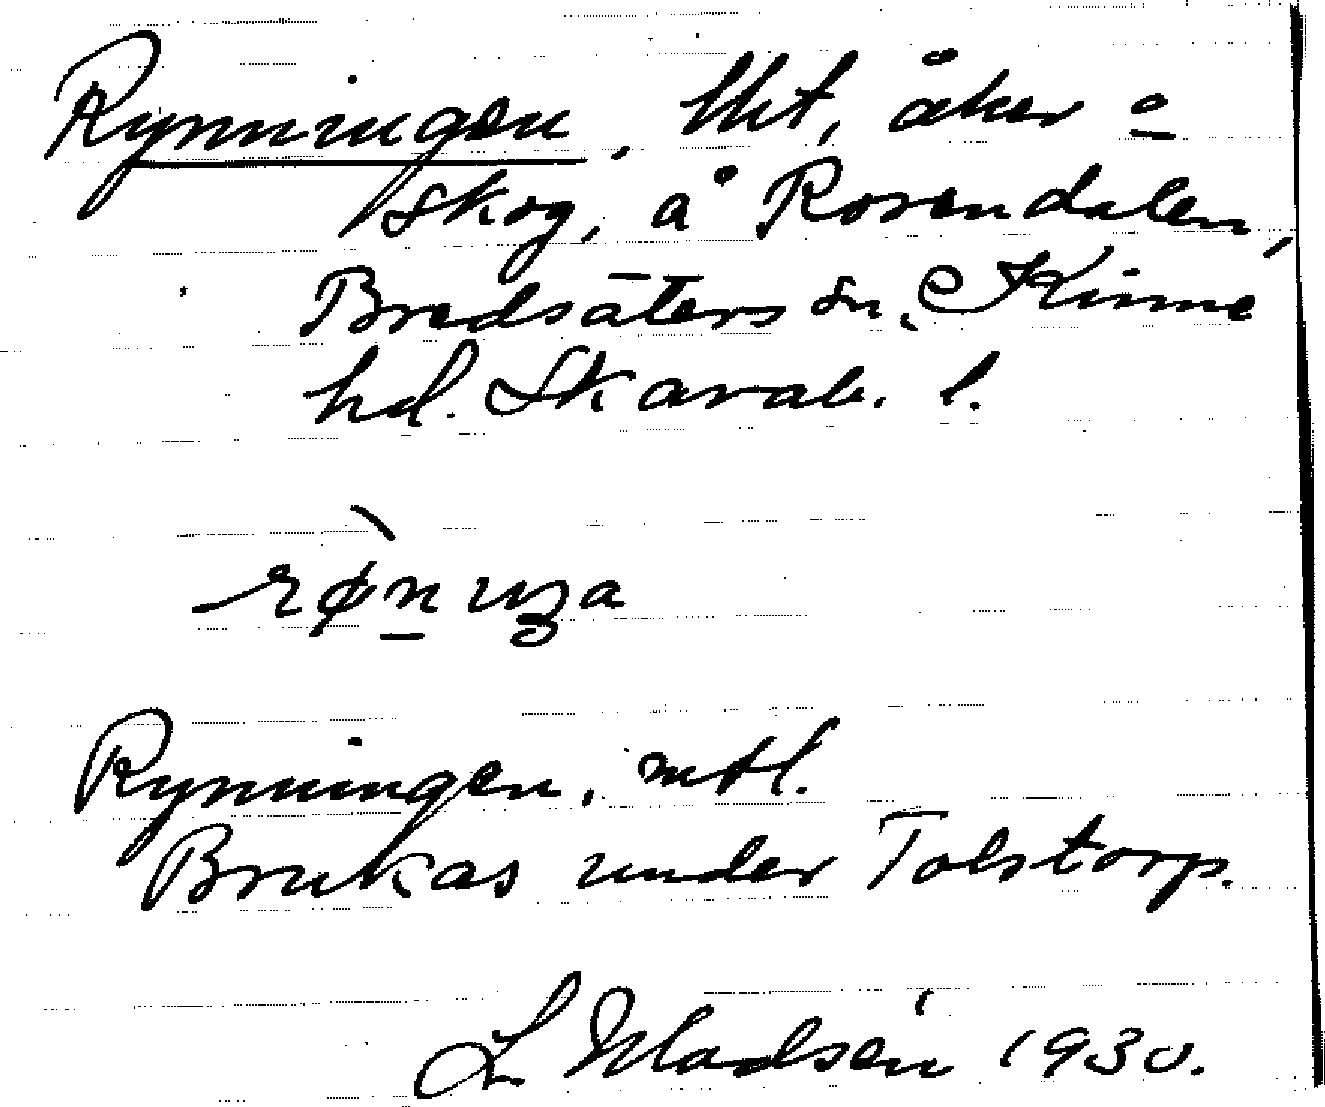 Rynningen, lht, åker o
skog, å Rosendalen,
Bredsäters sn, Kinne
hd. Skarab. l.
Rynningen, mtl.
Brukas under Tolstorp.
L Madsén 1930.